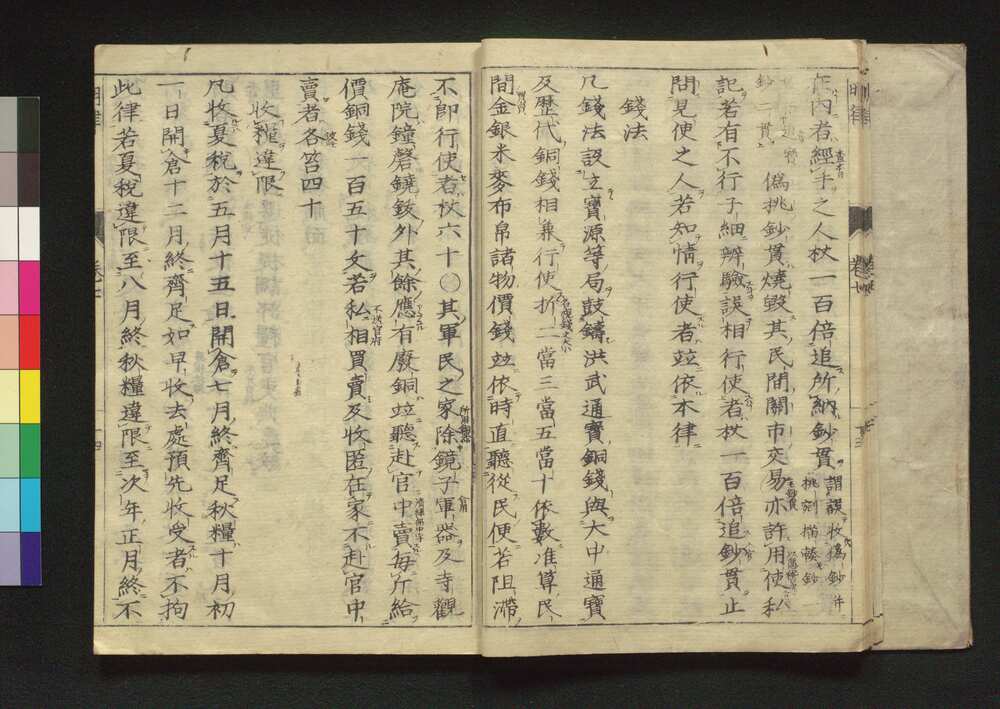 在內者經手之人杖一百倍追所納鈔貫謂誤收偽鈔并挑剜描輳鈔一
鈔二貫偽挑鈔貫燒毀其民間關市交易亦許用使私
記若有不行子細辨驗誤相行使者杖一百倍追鈔貫止
問見使之人若知情行使者竝依本律
錢法
凡錢法設立寶源等局鼓鑄洪武通寶銅錢與大中通寶
及歷代銅錢相兼行使折二當三當五當十依數准算民
間金銀米麥布帛諸物價錢竝依時直聽從民便若阻滯
不即行使者杖六十○其軍民之家除鏡子軍器及寺觀
庵院鐘磬鐃鈸外其餘應有廢銅竝聽赴官中賣每斤給
價銅錢一百五十文若私相買賣及收匿在家不赴官中
賣者各笞四十
收糧違限
凡收夏稅於五月十五日開倉七月終齊足秋糧十月初
一日開倉十二月終齊足如早收去處預先收受者不拘
此律若夏稅違限至八月終秋糧違限至次年正月終不
明律
卷七
十四